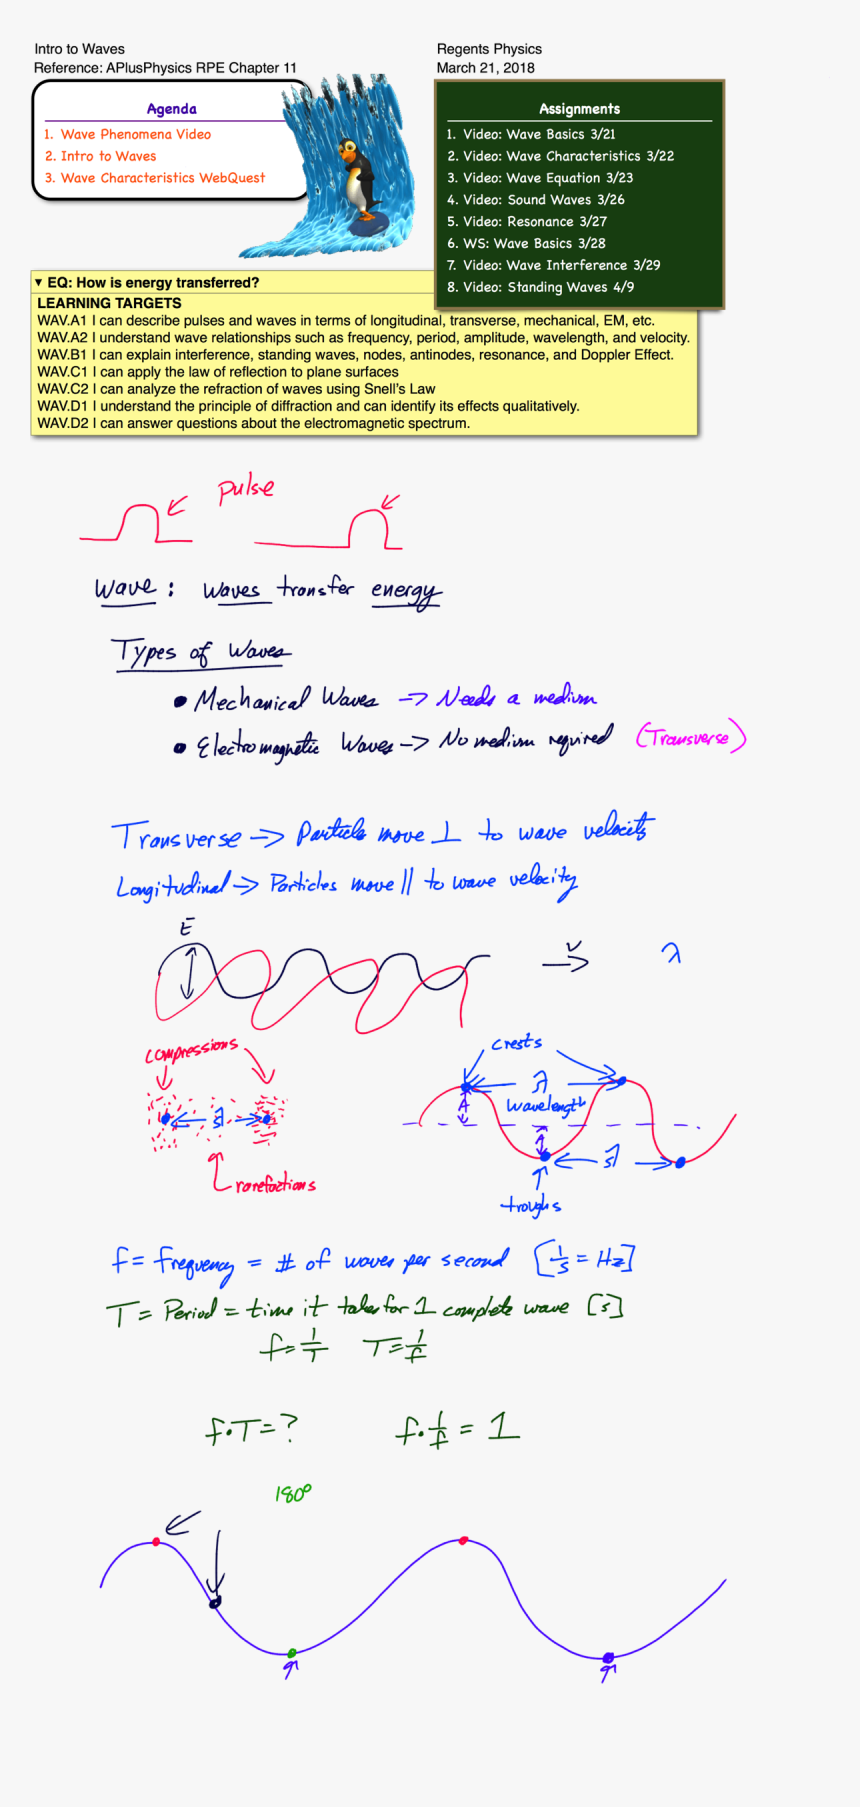 Intro to Waves
Reference: APlusPhysics RPE Chapter 11
Regents Physics
March 21, 2018
Agenda
1. Wave Phenomena Video
2. Intro to Waves
3. Wave Characteristics WebQuest
Assignments
1. Video: Wave Basics 3/21
2. Video: Wave Characteristics 3/22
3. Video: Wave Equation 3/23
4. Video: Sound Waves 3/26
5. Video: Resonance 3/27
6. WS: Wave Basics 3/28
7. Video: Wave Interference 3/29
8. Video: Standing Waves 4/9
▼ EQ: How is energy transferred?
LEARNING TARGETS
WAV.A1 I can describe pulses and waves in terms of longitudinal, transverse, mechanical, EM, etc.
WAV.A2 I understand wave relationships such as frequency, period, amplitude, wavelength, and velocity.
WAV.B1 I can explain interference, standing waves, nodes, antinodes, resonance, and Doppler Effect.
WAV.C1 I can apply the law of reflection to plane surfaces
WAV.C2 I can analyze the refraction of waves using Snell's Law
WAV.D1 I understand the principle of diffraction and can identify its effects qualitatively.
WAV.D2 I can answer questions about the electromagnetic spectrum.
pulse
Wave: Waves transfer energy
Types of Waves
• Mechanical Waves → Needs a medium
• Electromagnetic Waves → No medium required (Transverse)
Transverse → Particles move ⊥ to wave velocity
Longitudinal → Particles move || to wave velocity
E
v
λ
compressions
λ
rarefactions
crests
λ
wavelength
A
A
λ
troughs
f = frequency = # of waves per second [1/s = Hz]
T = Period = time it takes for 1 complete wave [s]
f = 1/T T = 1/f
f·T = ? f·1/f = 1
180°